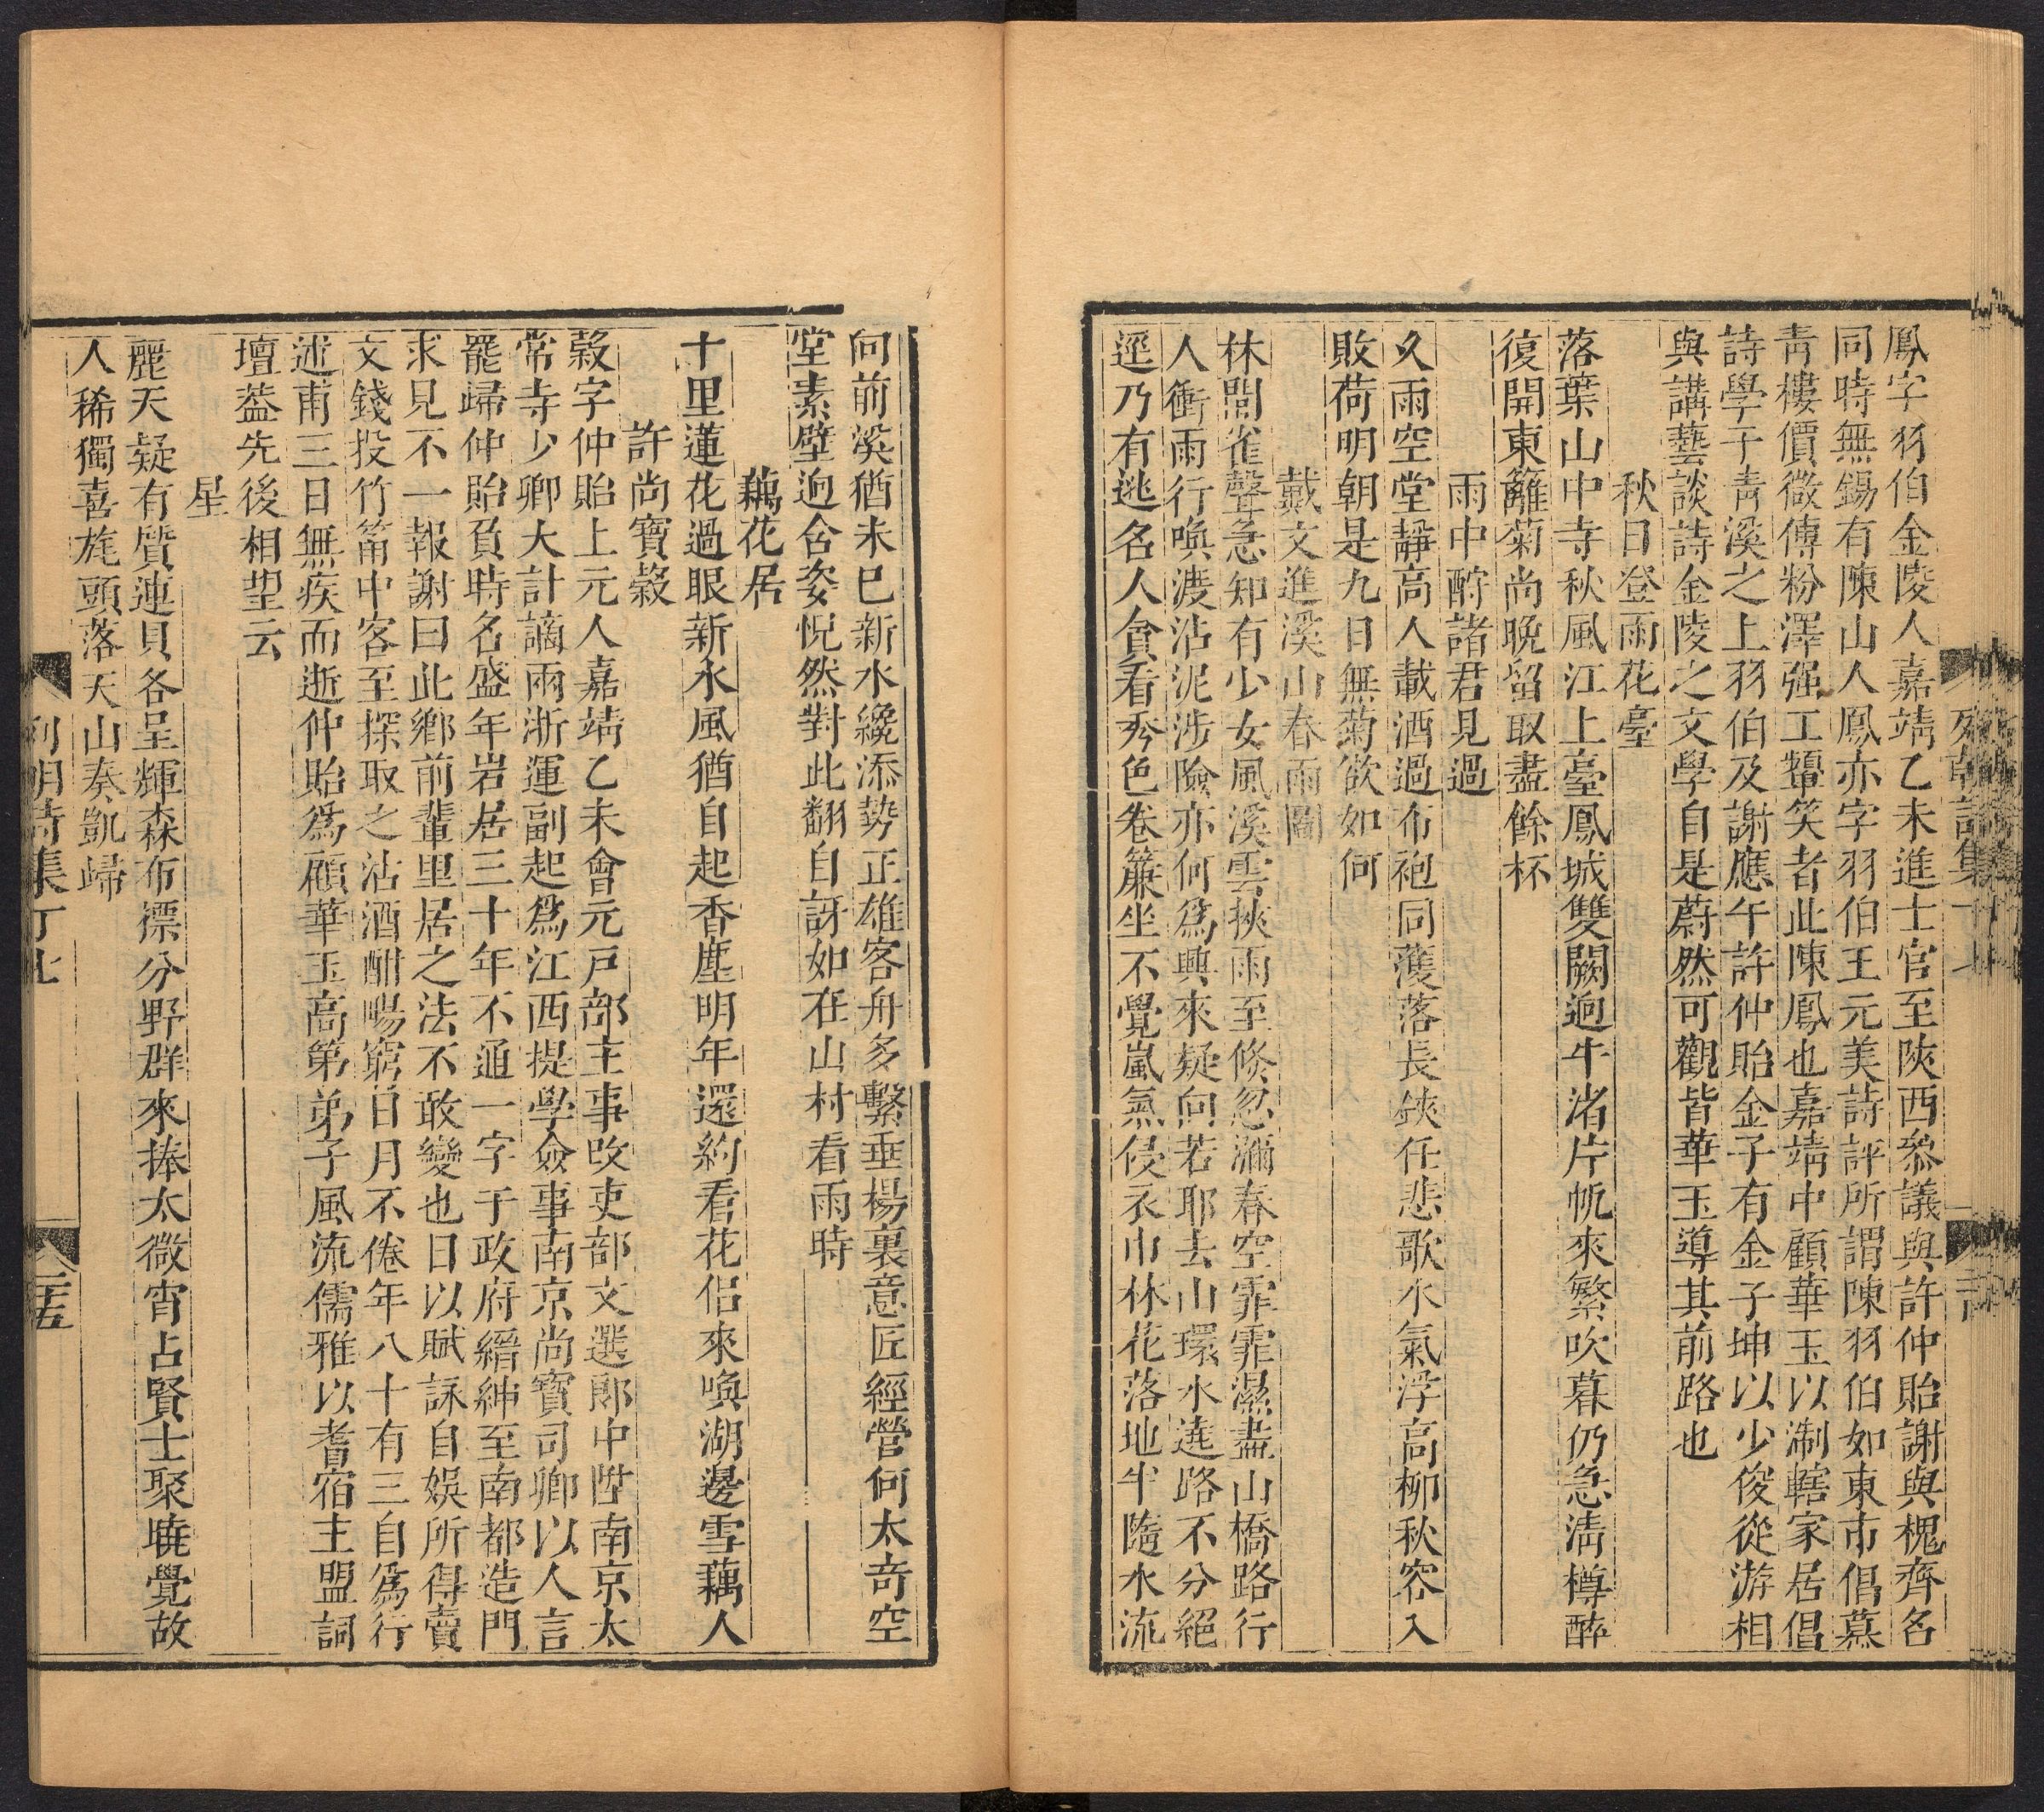 列朝詩集丁七
鳳字羽伯金陵人嘉靖乙未進士官至陝西參議與許仲貽謝與槐齊名
同時無錫有陳山人鳳亦字羽伯王元美詩評所謂陳羽伯如東市倡慕
青樓價微傳粉澤强工顰笑者此陳鳳也嘉靖中顧華玉以淛轄家居倡
詩學于青溪之上羽伯及謝應午許仲貽金子有金子坤以少俊從游相
與講藝談詩金陵之文學自是蔚然可觀皆華玉導其前路也
秋日登雨花臺
落葉山中寺秋風江上臺鳳城雙闕迥牛渚片帆來繁吹暮仍急淸樽醉
復開東籬菊尚晚留取盡餘杯
雨中酧諸君見過
久雨空堂靜高人載酒過布袍同濩落長鋏任悲歌水氣浮高柳秋容入
敗荷明朝是九日無菊欲如何
戴文進溪山春雨圖
林間雀聲急知有少女風溪雲挾雨至倏忽瀰春空霏霏濕盡山橋路行
人衝雨行喚渡沾泥涉險亦何爲興來疑向若耶去山環水遶路不分絕
逕乃有逃名人貪看秀色卷簾坐不覺嵐氣侵衣巾林花落地半隨水流
向前溪猶未巳新水纔添勢正雄客舟多繫垂楊裏意匠經營何太奇空
堂素壁迥含姿怳然對此翻自訝如在山村看雨時
藕花居
十里蓮花過眼新永風猶自起香塵明年還約看花侶來喚湖邊雪藕人
許尚寶穀
穀字仲貽上元人嘉靖乙未會元戸部主事改吏部文選郞中陞南京太
常寺少卿大計謫兩浙運副起爲江西提學僉事南京尚寶司卿以人言
罷歸仲貽負時名盛年岩居三十年不通一字于政府縉紳至南都造門
求見不一報謝曰此鄉前輩里居之法不敢變也日以賦詠自娛所得賣
文錢投竹筩中客至探取之沽酒酣暢窮日月不倦年八十有三自爲行
述甫三日無疾而逝仲貽爲顧華玉高第弟子風流儒雅以耆宿主盟詞
壇葢先後相望云
星
麗天疑有質連貝各呈輝森布禠分野群來捧太微宵占賢士聚曉覺故
人稀獨喜旄頭落天山奏凱歸
列朝詩集丁七
二十五